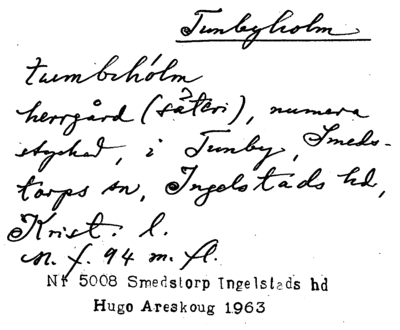 Tunbyholm
tumbehólm
herrgård (säteri), numera
?
styckad, i Tunby, Smeds-
torps sn, Ingelstads hd,
Krist. l.
n. f. 94 m. fl.
Nr 5008 Smedstorp Ingelstads hd
Hugo Areskoug 1963